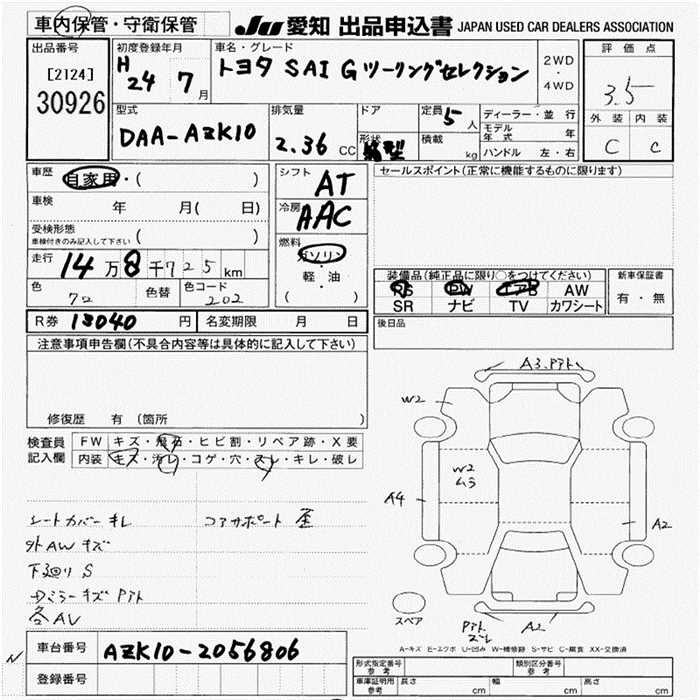 車内保管・守衛保管
JU 愛知 出品申込書 JAPAN USED CAR DEALERS ASSOCIATION
出品番号
[2124]
30926
初度登録年月
H 24 7 月
車名・グレード
トヨタ SAI G ツーリングセレクション
2WD
・
4WD
評価点
3.5
外装 内装
C C
型式
DAA-AZK10
排気量
2.36 CC
ドア
形状
箱型
定員 5 人
積載 kg
ディーラー・並行
モデル年式 年
ハンドル 左・右
車歴 自家用・( )
車検 年 月( 日)
受検形態
車検付きのみ記入して下さい ( )
走行 14万8千725km
色 色替 色コード 202
シフト AT
冷房 AAC
燃料
ガソリン
・
軽・油
( )
セールスポイント(正常に機能するものに限ります)
装備品(純正品に限り○をつけてください)
PS PW エアB AW
SR ナビ TV カワシート
新車保証書
有・無
後日品
R券 13040 円 名変期限 月 日
注意事項申告欄(不具合内容等は具体的に記入して下さい)
修復歴 有 (箇所 )
検査員記入欄
FW キズ・飛石・ヒビ割・リペア跡・X要
内装 キズ・汚レ・コゲ・穴・スレ・キレ・破レ
シートカバーキレ
コアサポート 歪
外AWキズ
下廻り S
ミラーキズ アト
各AU
A3.アト
W2
W2
ムラ
A4
A2
スペア
アト
ズレ
A2
A-キズ E-エクボ U-凹み W-補修跡 S-サビ C-腐食 XX-交換済
車台番号 AZK10-2056806
登録番号
N
形式指定番号
参考
類別区分番号
参考
車庫証明用
参考
長さ cm 幅 cm 高さ cm